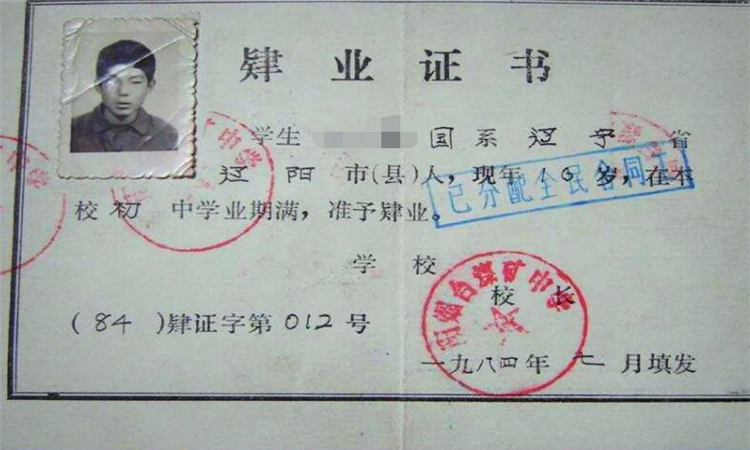 肄业证书
学生 国系辽宁省
辽阳市(县)人，现年16岁，在本
校初中学业期满，准予肄业。
已分配全民合同工
学校
校长
烟台煤矿中学
(84)肄证字第012号
一九八四年七月填发